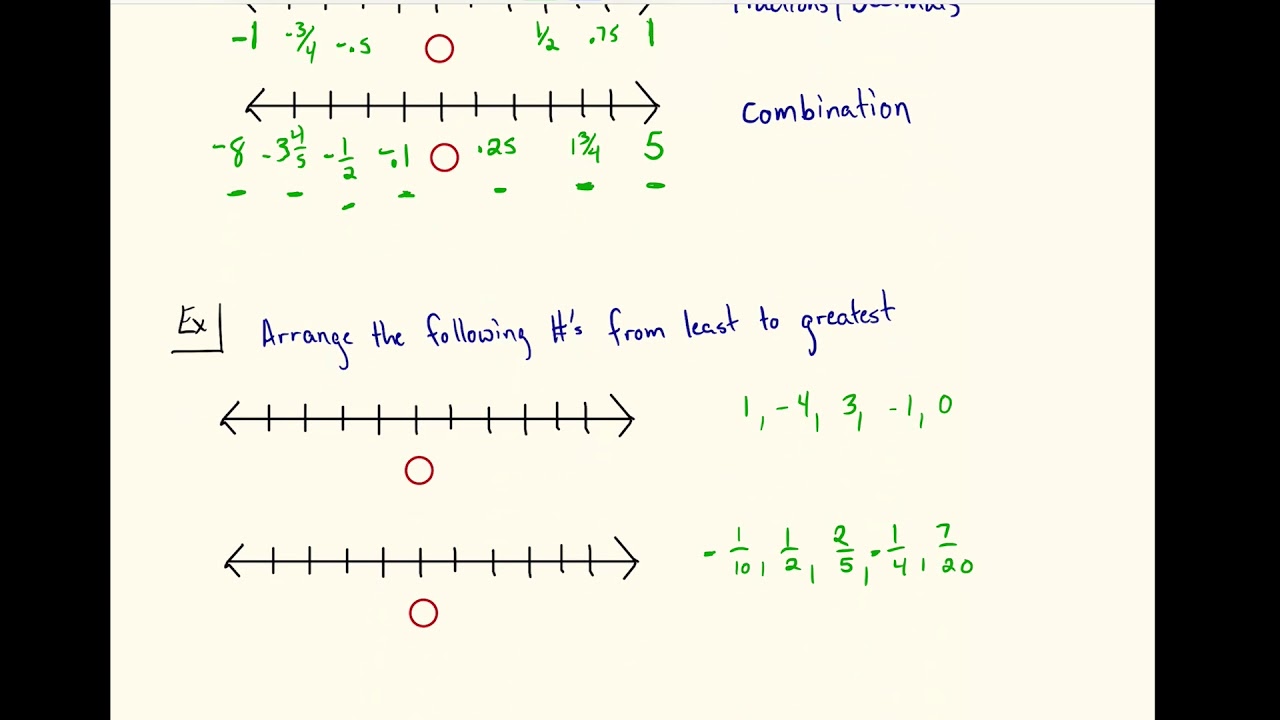 -1 -3/4 -.5 0 1/2 .75 1
Combination
-8 -3 4/5 -1/2 -.1 0 .25 1 3/4 5
Ex Arrange the following #'s from least to greatest
1, -4, 3, -1, 0
0
-1/10, 1/2, 2/5, -1/4, 7/20
0